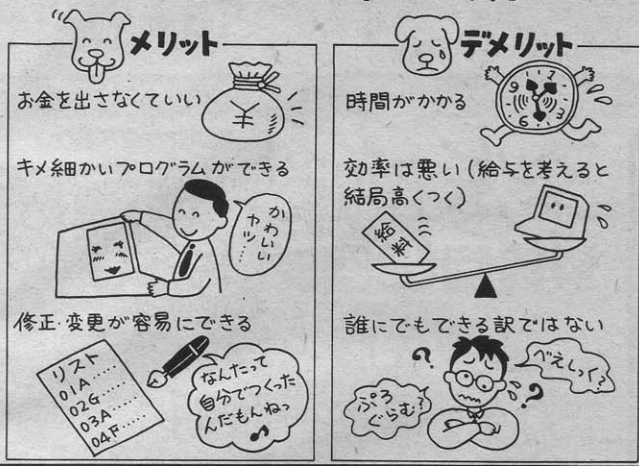 メリット
お金を出さなくていい
¥
キメ細かいプログラムができる
かわいい
ヤツ……
修正・変更が容易にできる
リスト
01A……
02G……
03A……
04F……
なんたって
自分でつくった
んだもんねっ
♪
デメリット
時間がかかる
9 12 3 6
効率は悪い(給与を考えると
結局高くつく)
給料
誰にでもできる訳ではない
?
べえしっく?
?
ぷろ
ぐらむ?